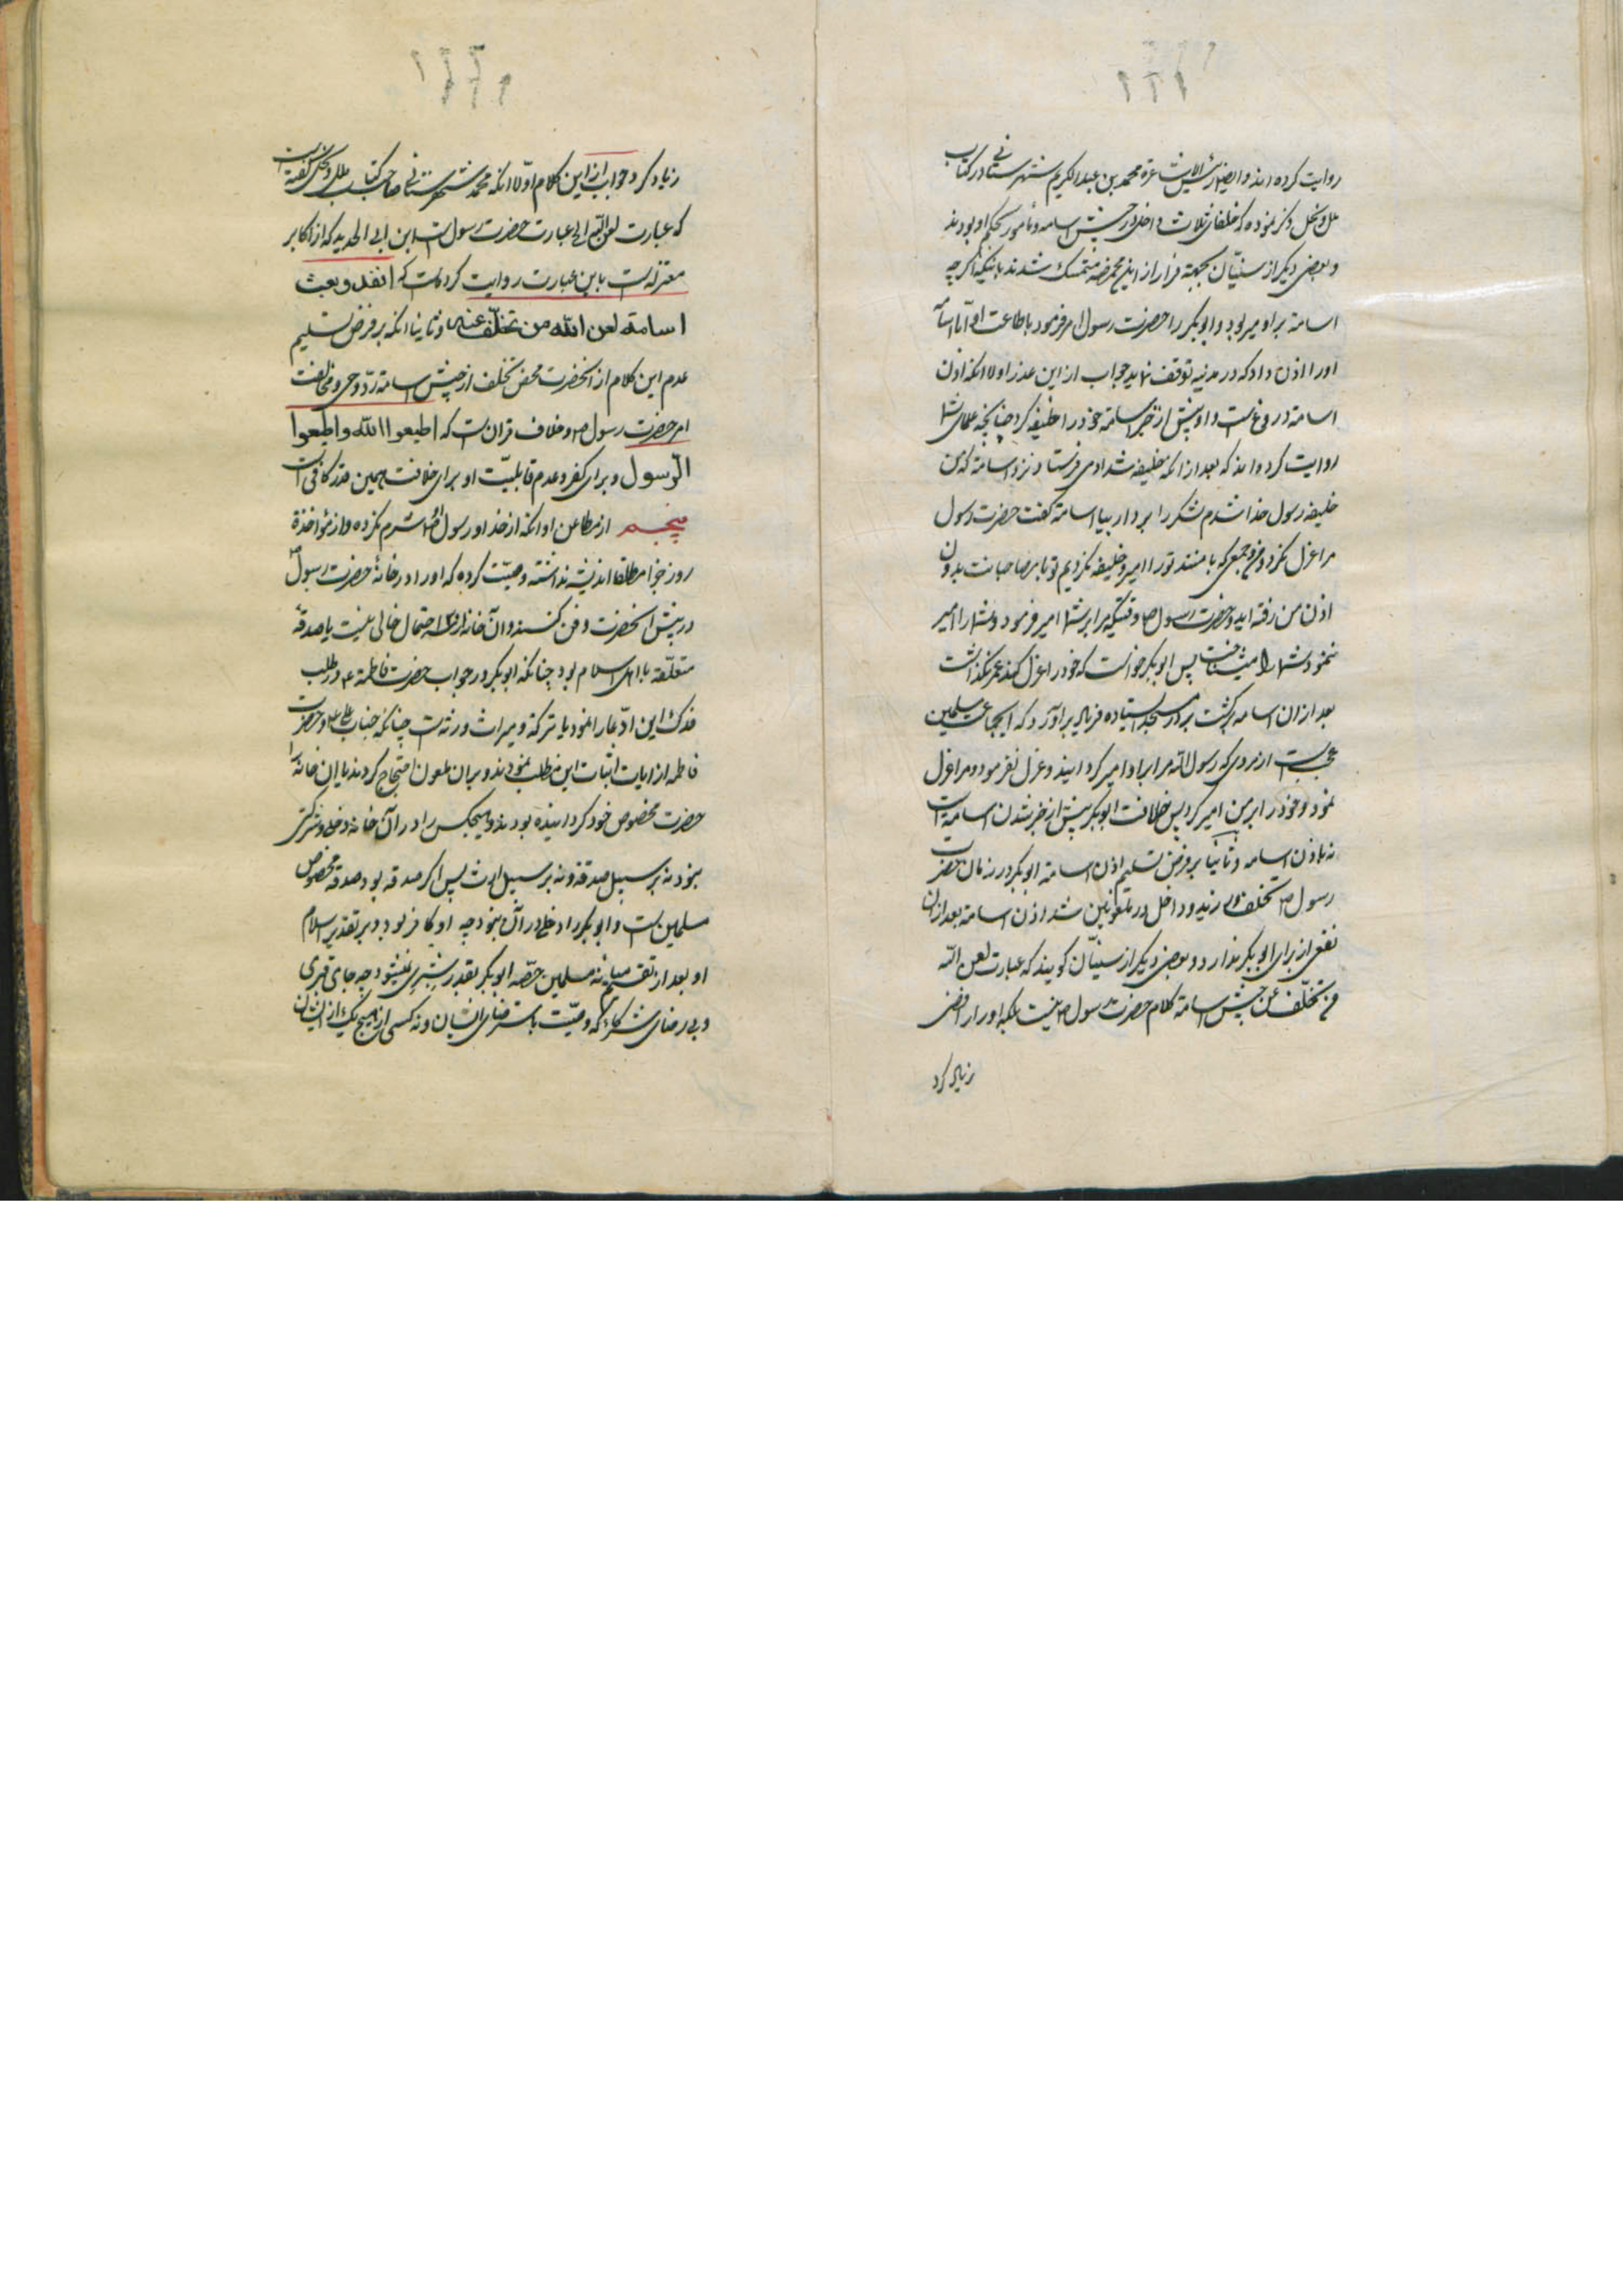 روایت کرده اند و ایضا رئیس الاشاعره محمد بن عبدالکریم شهرستانی در کتاب
ملل و نحل ذکر نموده که خلفای ثلاث داخل در جیش اسامه و مأمور بحکم او بودند
و بعضی دیگر از سنیّان بجهة فرار از این مخمصه متمسک شدند باینکه اگر چه
اسامة بر او امیر بود و ابوبکر را حضرت رسول امر فرمود باطاعت او اما اسامة
او را اذن داد که در مدینه توقف نماید جواب از این عذر اولا انکه اذن
اسامة دروغ است و او پیش از خبر اسامه خود را خلیفه کرد چنانچه علمای شما
روایت کرده اند که بعد از انکه خلیفه شد ادمی فرستاد نزد اسامة که من
خلیفه رسول خدا شدم لشکر را بردار بیا اسامة گفت حضرت رسول
مرا عزل نکرد و من و جمعی که با منند تو را امیر و خلیفه نکردیم تو با مصاحبانت بدون
اذن من رفته اید و حضرت رسول ص وقتیکه مرا بر شما امیر فرمود و شما را امیر
ننمود شما را میشناخت پس ابوبکر خواست که خود را عزل کند عمر نگذاشت
بعد از ان اسامه برگشت بر در مسجد ایستاده فریاد براورد که ایجماعت مسلمین
عجب است از مردی که رسول الله مرا بر او امیر گردانید و عزل نفرمود و مرا عزل
نمود و خود را بر من امیر کرد پس خلافت ابوبکر پیش از خبر شدن اسامة است
نه باذن اسامه و ثانیا بر فرض تسلیم اذن اسامة ابوبکر در زمان حضرت
رسول ص تخلف ورزید و داخل در ملعونین شد اذن اسامة بعد از ان
نفعی از برای ابوبکر ندارد و بعضی دیگر از سنیّان گویند که عبارت لعن الله
من تخلّف عن جیش اسامة کلام حضرت رسول ص نیست بلکه او را رافضی
زیاد کرد
زیاد کرد جواب از این کلام اولا انکه محمد شهرستانی صاحب کتاب ملل و نحل گفته است
که عبارت لعن الله الی عبارت حضرت رسول است ابن ابی الحدید که از اکابر
معتزله است باین عبارت روایت کرده است که انفذ و بعث
اسامة لعن الله من تخلّف عنه و ثانیا انکه بر فرض تسلیم
عدم این کلام از انحضرت محض تخلف از جیش اسامة ردّ وحی و مخالفت
امر حضرت رسول ص و خلاف قران است که اطیعوا الله و اطیعوا
الرّسول و برای کفر و عدم قابلیّت او برای خلافت همین قدر کافی است
پنجم از مطاعن او انکه از خدا و رسول شرم نکرده و از مؤاخذة
روز جزا مطلقا اندیشه نداشته وصیّت کرده که او را در خانهٔ حضرت رسول
در پیش انحضرت دفن کنند و آن خانه از احتمال خالی نیست یا صدقهٔ
متعلّقه باهل اسلام بود چنانکه ابوبکر در جواب حضرت فاطمة ع در طلب
فدک این ادّعا را نمود یا ترکه و میراث ورثه است چنانکه جناب و حضرت
فاطمه از ایات اثبات این مطلب نمودند و بر ان ملعون احتجاج کردند یا ان خانه را
حضرت مخصوص خود گردانیده بودند و هیچکس را در آن خانه دخل و شرکتی
نبود نه بر سبیل صدقه و نه بر سبیل ارث پس اگر صدقه بود صدقه مخصوص
مسلمین است و ابوبکر را دخلی در آن نبود چه او کافر بود و بر تقدیر اسلام
او بعد از تقسیم میانه مسلمین حصّه ابوبکر بقدر شبری نمیشود چه جای قبری
و بی رضای شرکاء که وصیّت باسترضای ایشان و نه کسی از هیچ یک از ایشان